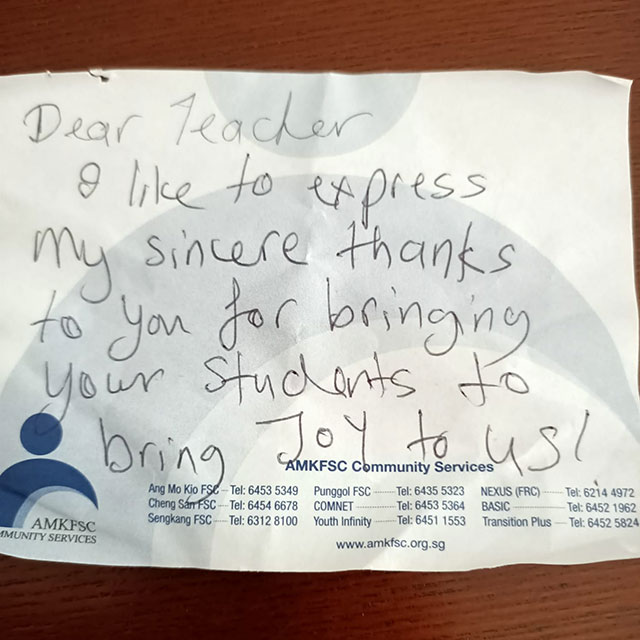 Dear Teacher
I like to express
my sincere thanks
to you for bringing
your students to
bring JOY to us!
AMKFSC Community Services
Ang Mo Kio FSC Tel: 6453 5349 Punggol FSC Tel: 6435 5323 NEXUS (FRC) Tel: 6214 4972
Cheng San FSC Tel: 6454 6678 COMNET Tel: 6453 5364 BASIC Tel: 6452 1962
Sengkang FSC Tel: 6312 8100 Youth Infinity Tel: 6451 1553 Transition Plus Tel: 6452 5824
www.amkfsc.org.sg
AMKFSC
MMUNITY SERVICES